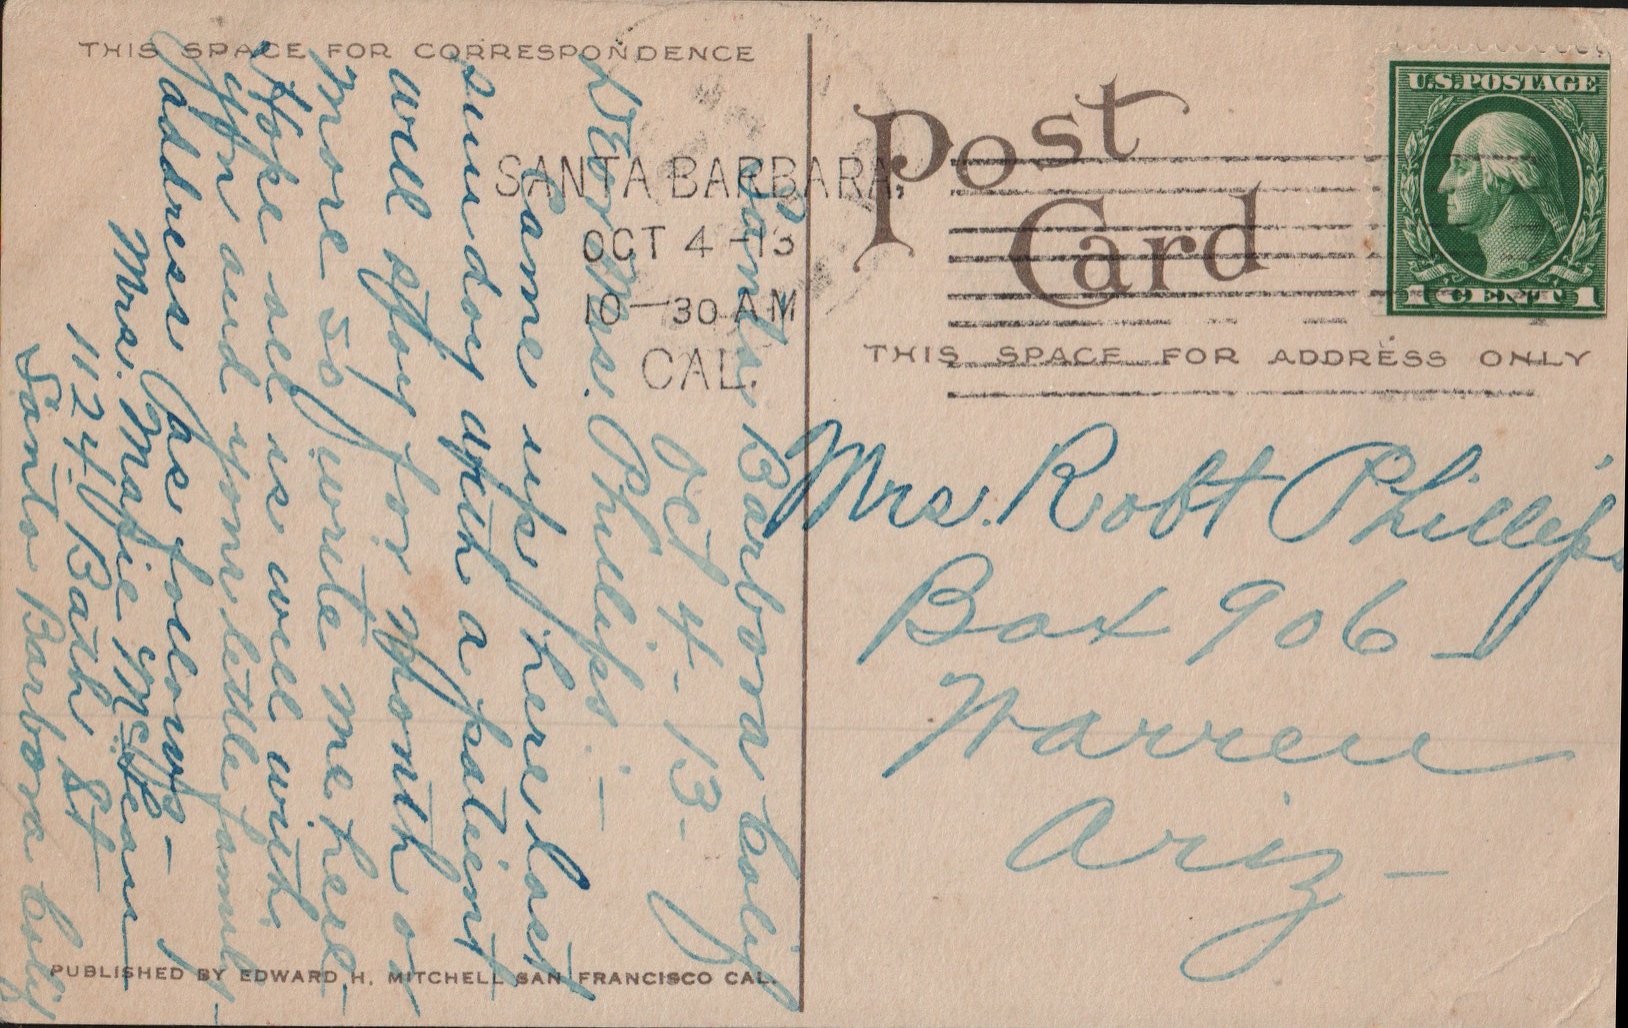 THIS SPACE FOR CORRESPONDENCE
Santa Barbara Calif
Oct 4 - 13 -
Dear Mrs. Phillips -
Came up here last
sunday with a patient
will stay for month or
more so write me here -
Hope all is well with
you and your little family -
address as follows -
Mrs. Marie
1124 Bath St
Santa Barbara Calif
PUBLISHED BY EDWARD H. MITCHELL SAN FRANCISCO CAL.
SANTA BARBARA,
OCT 4 -13
10-30 AM
CAL.
Post
Card
U.S. POSTAGE
1 CENT 1
THIS SPACE FOR ADDRESS ONLY
Mrs. Robt Phillips
Box 906 -
Warren
Ariz -